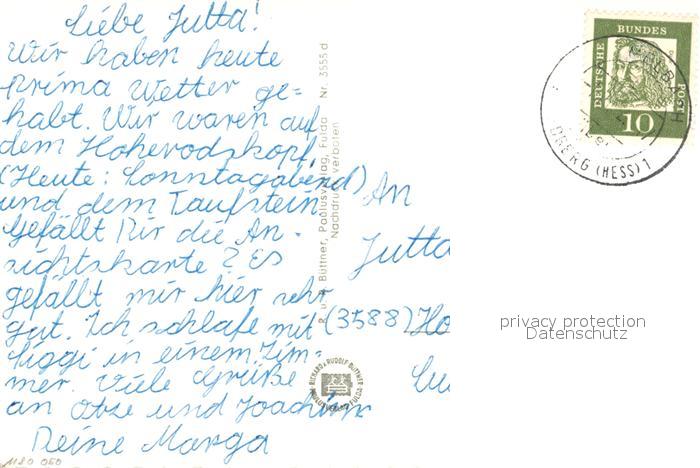 Liebe Jutta!
Wir haben heute
prima Wetter ge=
habt. Wir waren auf
dem Hoherodskopf,
(Heute: Sonntagabend)
und dem Taufstein
Gefällt Dir die An-
sichtskarte? Es
gefällt mir hier sehr
gut. Ich schlafe mit
Siggi in einem Zim-
mer. Viele Grüße
an Otze und Joachim
Deine Marga
An
Jutta
(3588) Ho
R. u. R. Büttner, Pablusverlag, Fulda Nr. 3555 d
Nachdruck verboten
RICHARD & RUDOLF BÜTTNER
FULDA
DEUTSCHE BUNDESPOST
10
(HESS) 1
privacy protection
Datenschutz
1180 050